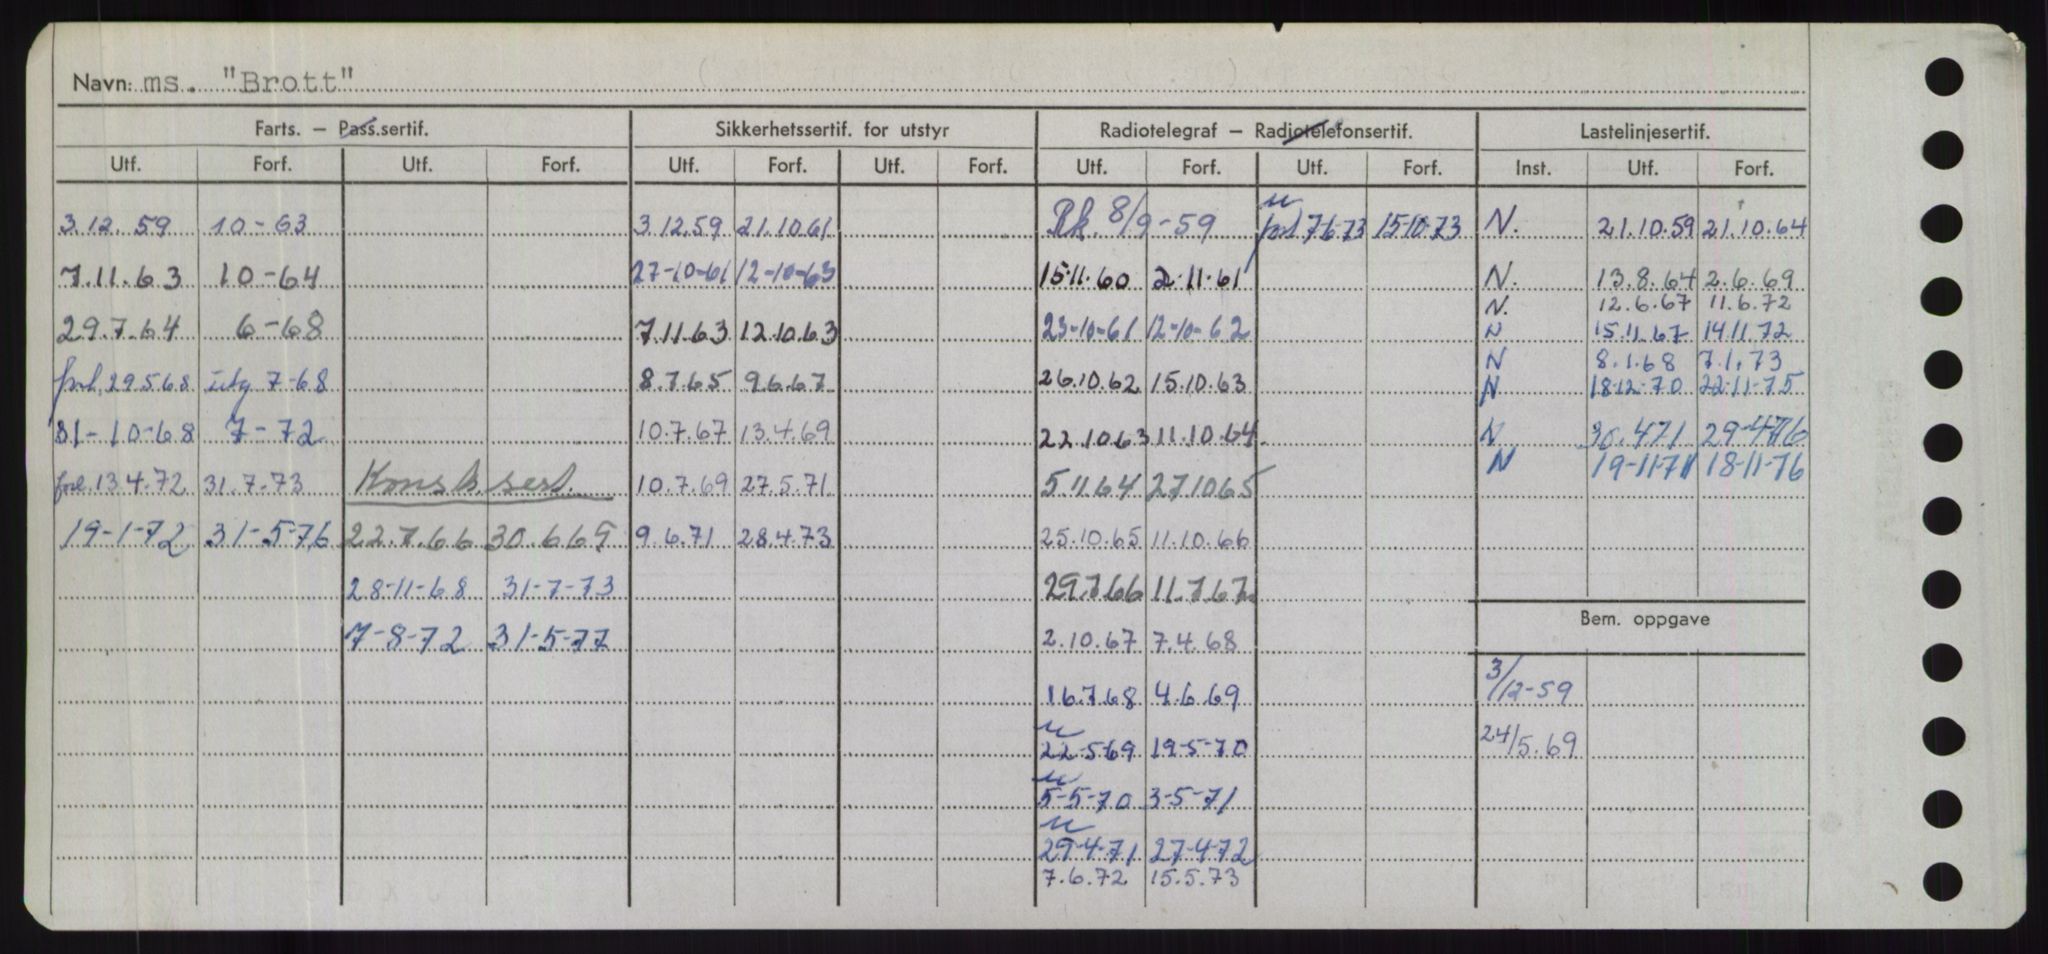 Navn: ms. "Brott"
Farts. – Pass.sertif. Sikkerhetssertif. for utstyr Radiotelegraf – Radiotelefonsertif. Lastelinjesertif.
Utf. Forf. Utf. Forf. Utf. Forf. Utf. Forf. Utf. Forf. Utf. Forf. Inst. Utf. Forf.
3.12.59 10-63 3.12.59 21.10.61 Rk. 8/9-59 7-6-73 15-10-73 N. 21.10.59 21.10.64
7.11.63 10-64 27-10-61 12-10-63 15.11.60 2.11.61 N. 13.8.64 2.6.69
N. 12.6.67 11.6.72
29.7.64 6-68 7.11.63 12.10.63 23-10-61 12-10-62 N 15.11.67 14.11.72
N 8.1.68 7.1.73
forl. 29.5.68 utg 7-68 8.7.65 9.6.67 26.10.62 15.10.63 N 18-12-70 22-11-75
31-10-68 7-72 10.7.67 13.4.69 22.10.63 11.10.64 N 30.4.71 29-4-76
N 19-11-71 18-11-76
forl. 13.4.72 31.7.73 Konstr.sert. 10.7.69 27.5.71 5.11.64 27.10.65
19-1-72 31-5-76 22.7.66 30.6.69 9.6.71 28.4.73 25.10.65 11.10.66
28-11-68 31-7-73 29.7.66 11.7.67
Bem. oppgave
7-8-72 31-5-77 2.10.67 7.4.68
16.7.68 4.6.69 3/12-59
22-5-69 19-5-70 24/5.69
5-5-70 3-5-71
29-4-71 27-4-72
7.6.72 15.5.73